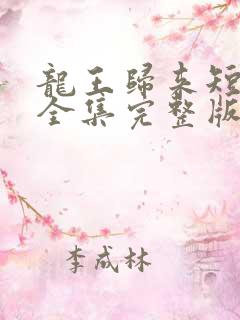 龍王歸來短
全集完整版
李成林